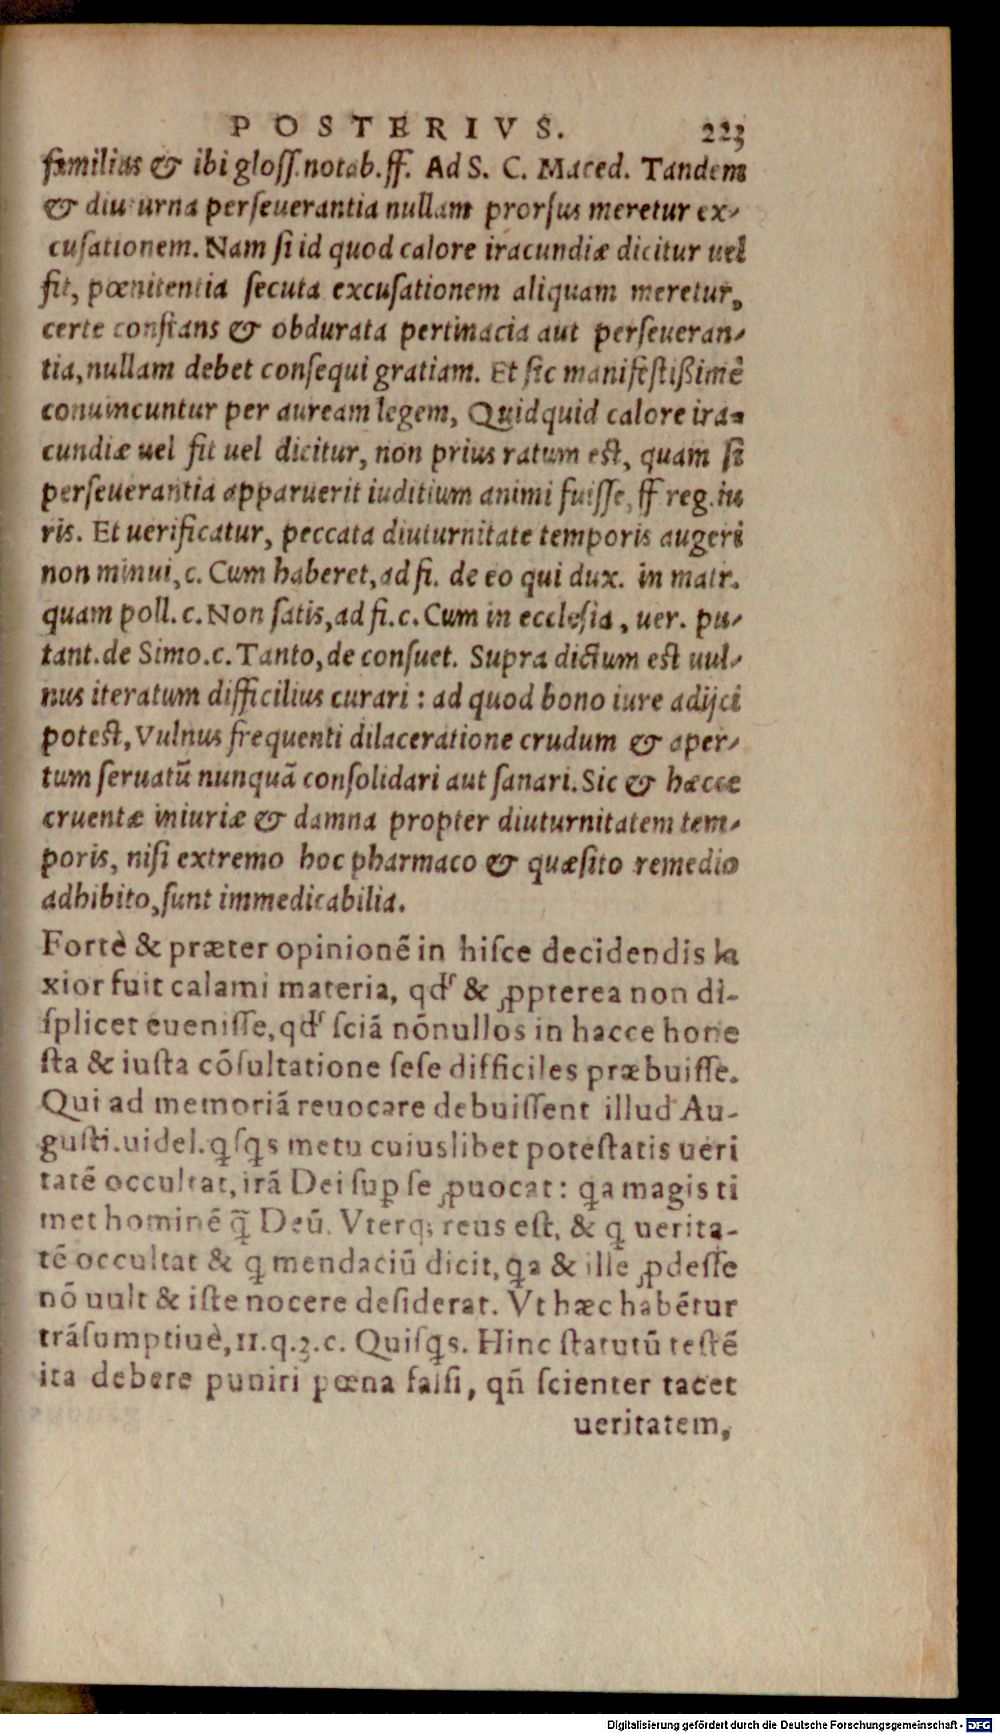 POSTERIVS. 223
familias & ibi gloss. notab. ff. Ad S. C. Maced. Tandem
& diuturna perseuerantia nullam prorsus meretur ex-
cusationem. Nam si id quod calore iracundiæ dicitur uel
fit, pœnitentia secuta excusationem aliquam meretur,
certe constans & obdurata pertinacia aut perseueran-
tia, nullam debet consequi gratiam. Et sic manifestißimè
conuincuntur per auream legem, Quidquid calore ira-
cundiæ uel fit uel dicitur, non prius ratum est, quam si
perseuerantia apparuerit iuditium animi fuisse, ff reg. iu
ris. Et uerificatur, peccata diuturnitate temporis augeri
non minui, c. Cum haberet, ad fi. de eo qui dux. in matr.
quam poll. c. Non satis, ad fi. c. Cum in ecclesia, uer. pu-
tant. de Simo. c. Tanto, de consuet. Supra dictum est uul-
nus iteratum difficilius curari: ad quod bono iure adijci
potest, Vulnus frequenti dilaceratione crudum & aper-
tum seruatū nunquā consolidari aut sanari. Sic & hæcce
cruentæ iniuriæ & damna propter diuturnitatem tem-
poris, nisi extremo hoc pharmaco & quæsito remedio
adhibito, sunt immedicabilia.
Fortè & præter opinionē in hisce decidendis la
xior fuit calami materia, qdˢ & ꝓpterea non di-
splicet euenisse, qdˢ sciā nōnullos in hacce hone
sta & iusta cōsultatione sese difficiles præbuisse.
Qui ad memoriā reuocare debuissent illud Au-
gusti. uidel. qͥsqͥs metu cuiuslibet potestatis ueri
tatē occultat, irā Dei sup̲ se ꝓuocat: qͥa magis ti
met hominē q̄ Deū. Vterq; reus est, & qͥ uerita-
tē occultat & qͥ mendaciū dicit, qͥa & ille ꝓdesse
nō uult & iste nocere desiderat. Vt hæc habētur
trāsumptiuè, 11. q. 3. c. Quisqͥs. Hinc statutū testē
ita debere puniri pœna falsi, qn̄ scienter tacet
ueritatem,
Digitalisierung gefördert durch die Deutsche Forschungsgemeinschaft - DFG